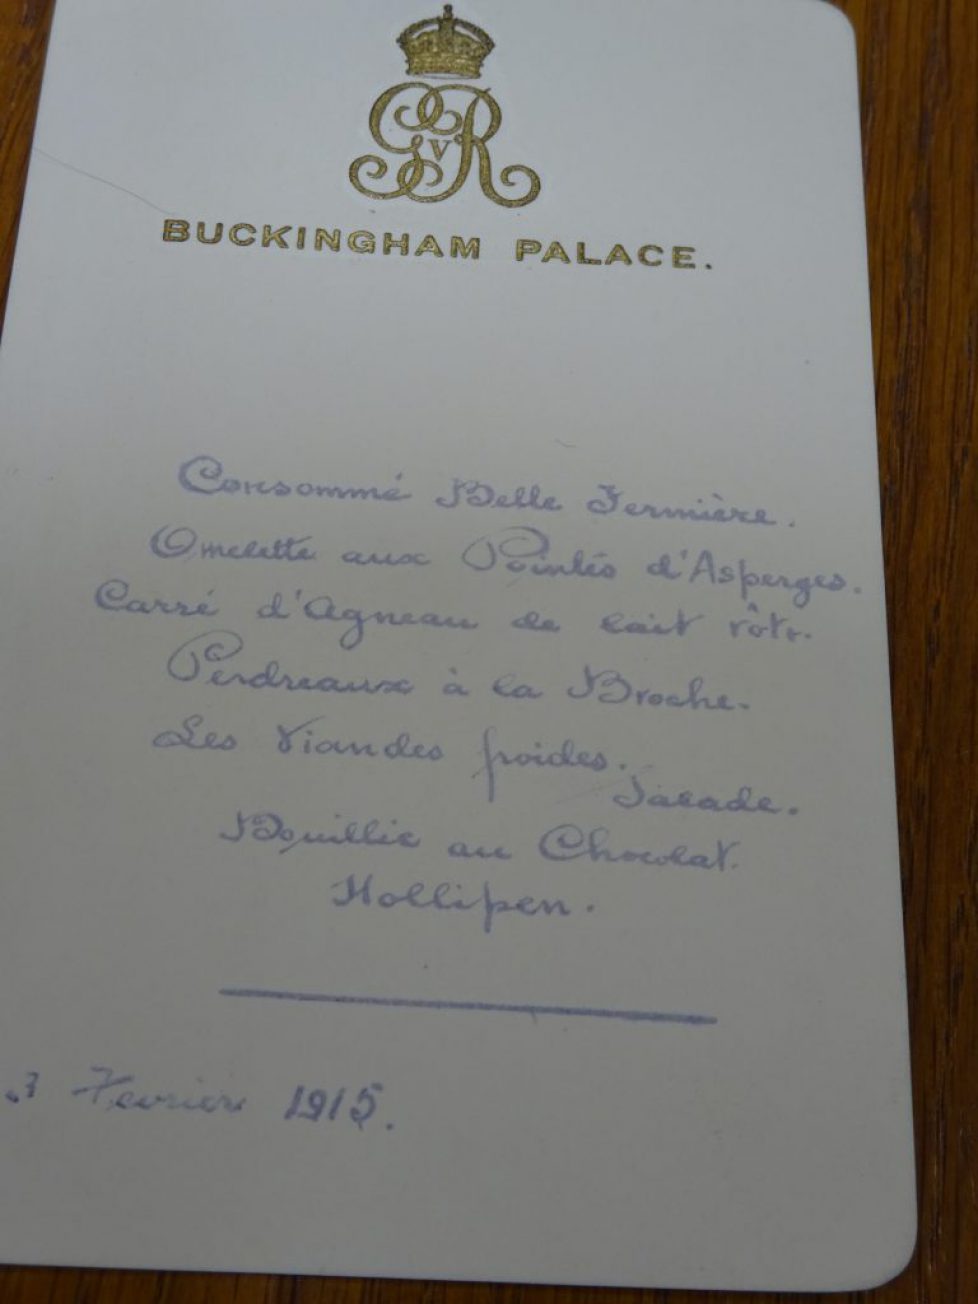 GVR
BUCKINGHAM PALACE.
Consommé Belle Fermière.
Omelette aux Pointés d'Asperges.
Carré d'Agneau de lait rôti.
Perdreaux à la Broche.
Les Viandes froides.
Salade.
Bouillie au Chocolat.
Hollipen.
3 Fevrier 1915.